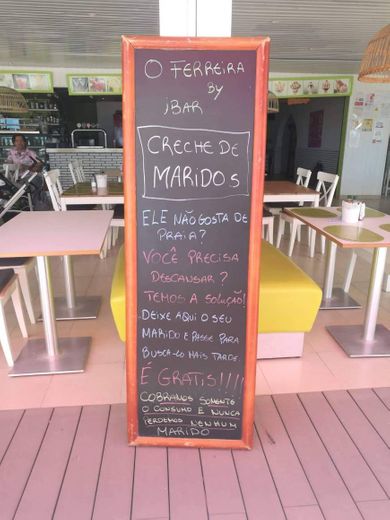 O FERREIRA
BY
iBAR
CRECHE DE
MARIDOS
ELE NÃO GOSTA DE
PRAIA?
VOCÊ PRECISA
DESCANSAR?
TEMOS A SOLUÇÃO!
DEIXE AQUI O SEU
MARIDO E PASSE PARA
BUSCA-LO MAIS TARDE
É GRATIS!!!!
COBRAMOS SOMENTE
O CONSUMO E NUNCA
PERDEMOS NENHUM
MARIDO